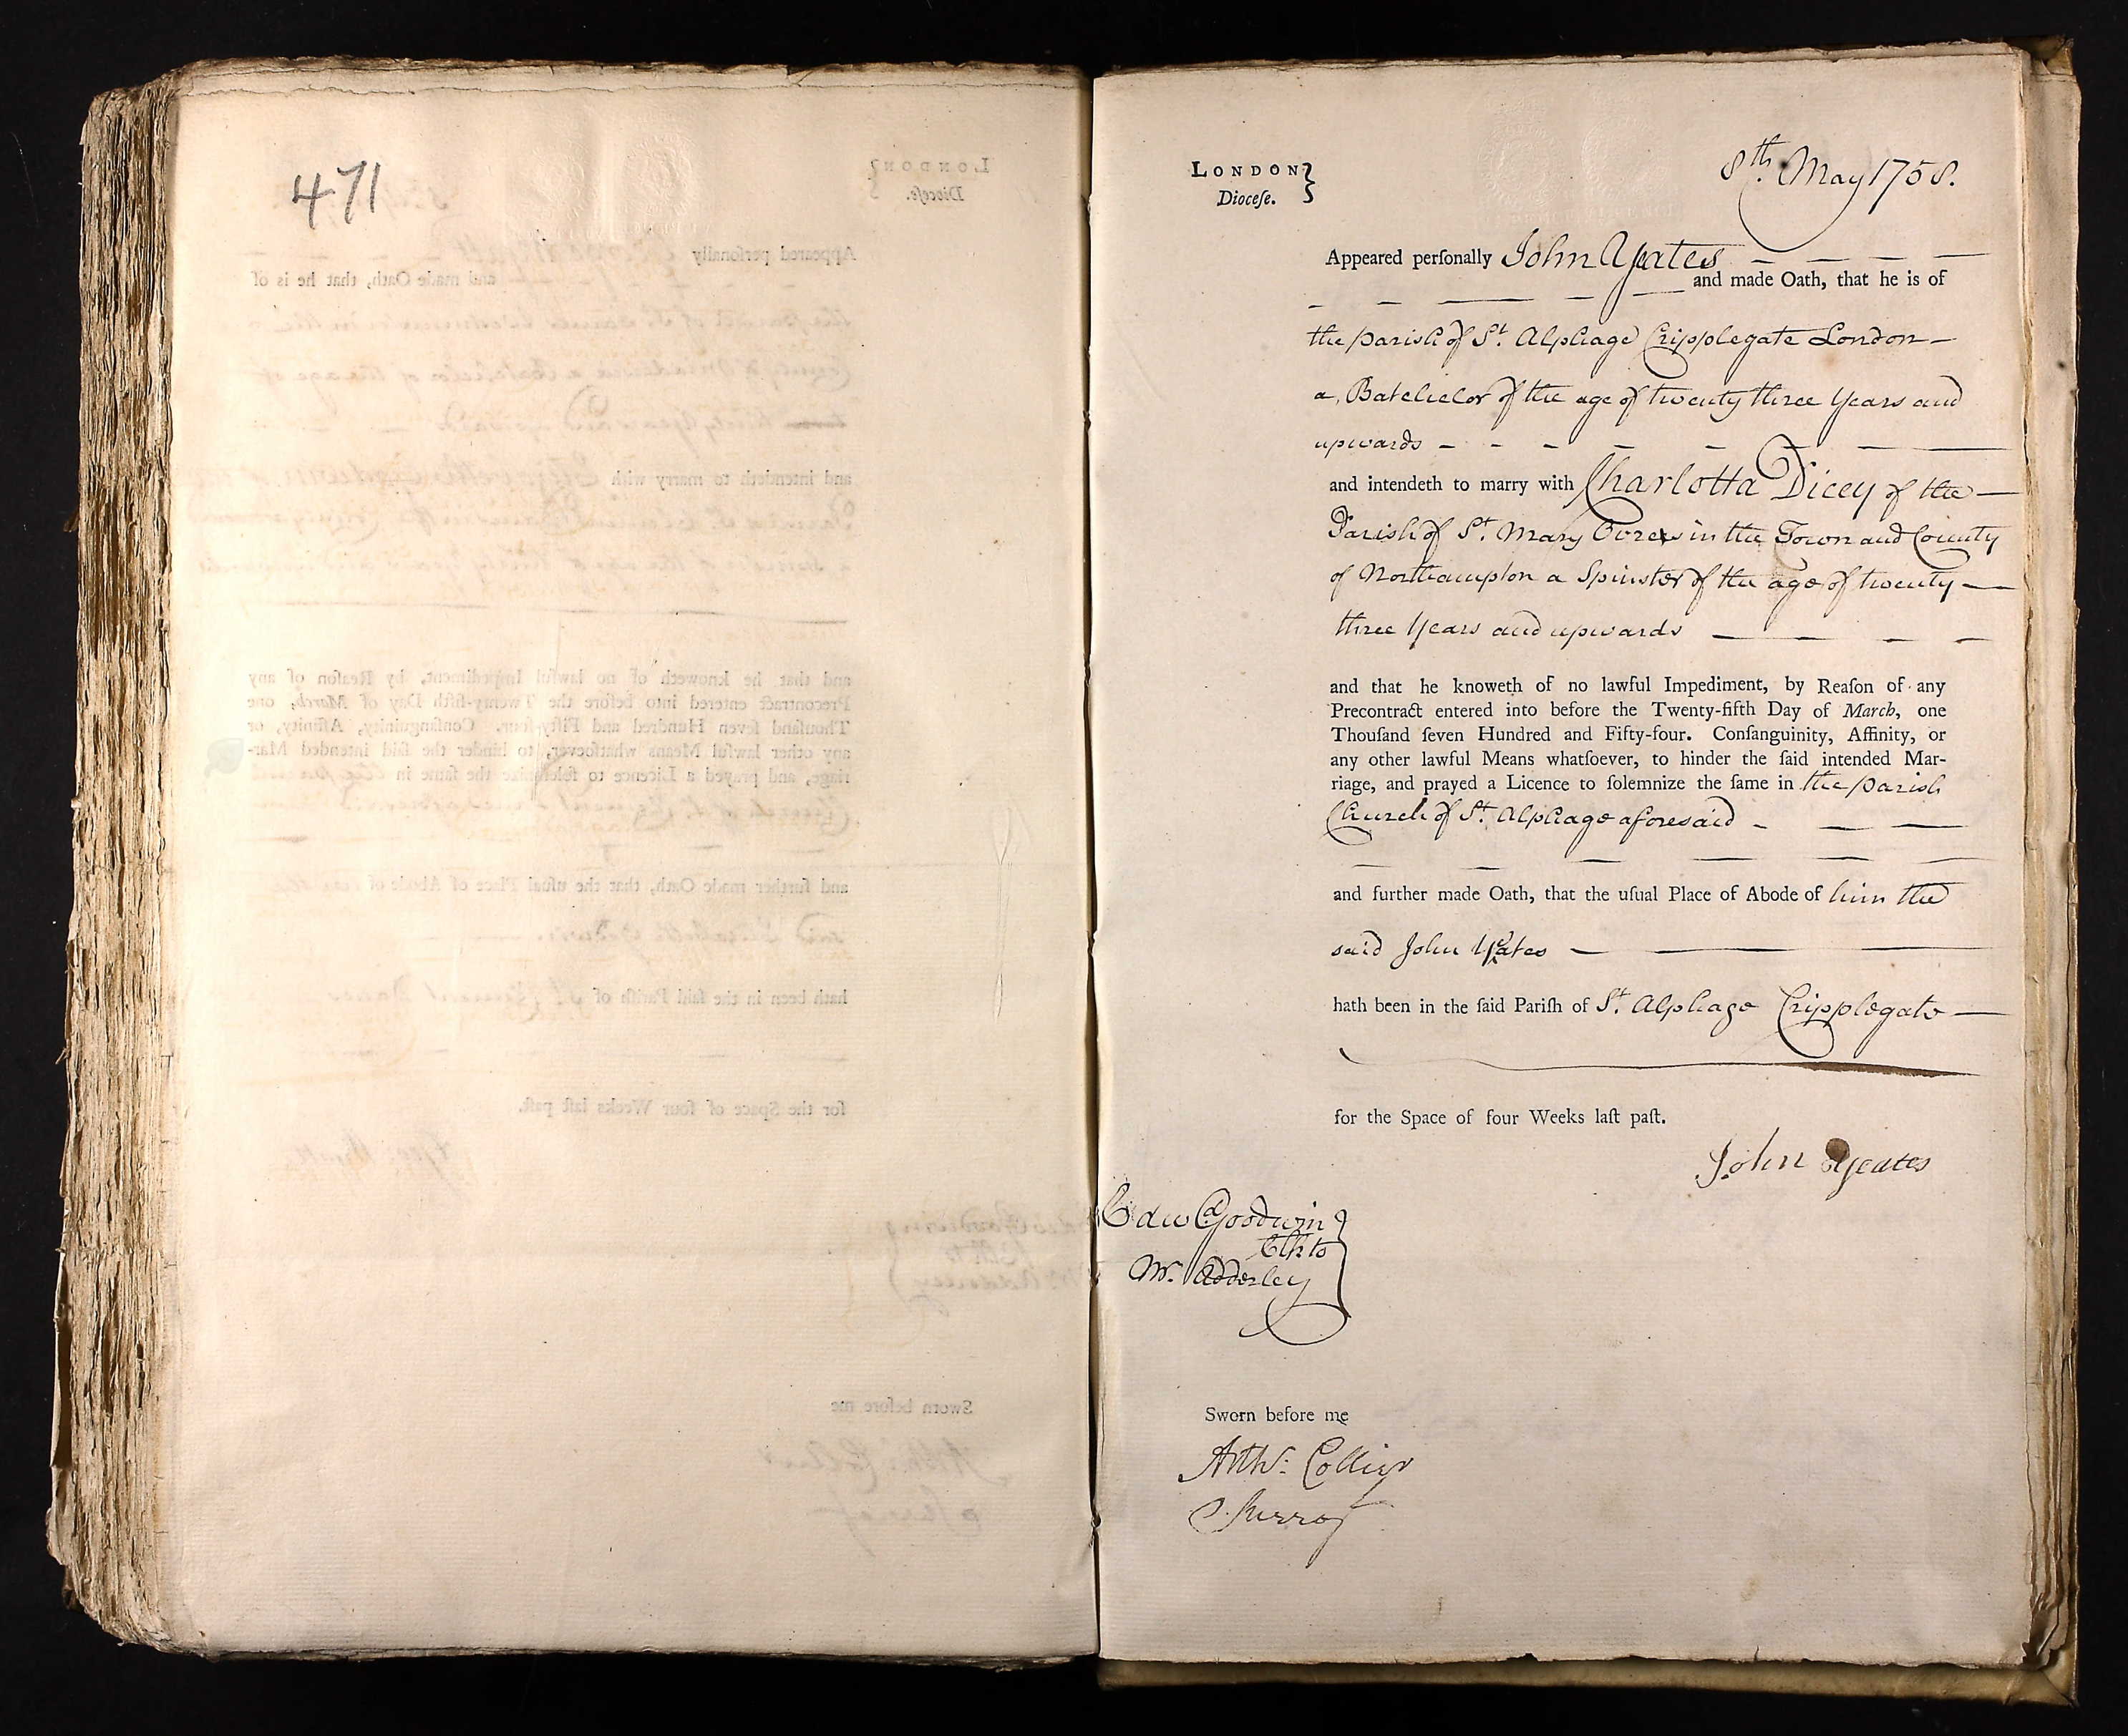 471
LONDON
Dioceſe.
8th. May 1758.
Appeared perſonally John Yeates
and made Oath, that he is of
the parish of St. Alphage Cripplegate London
a Batchelor of the age of twenty three Years and
upwards
and intendeth to marry with Charlotta Dicey of the
Parish of St. Mary Overs in the Town and County
of Northampton a Spinster of the age of twenty
three Years and upwards
and that he knoweth of no lawful Impediment, by Reaſon of any
Precontract entered into before the Twenty-fifth Day of March, one
Thouſand ſeven Hundred and Fifty-four. Conſanguinity, Affinity, or
any other lawful Means whatſoever, to hinder the ſaid intended Mar-
riage, and prayed a Licence to ſolemnize the ſame in the parish
Church of St. Alphage aforesaid
and further made Oath, that the uſual Place of Abode of him the
said John Yeates
hath been in the ſaid Pariſh of St. Alphage Cripplegate
for the Space of four Weeks laſt paſt.
John Yeates
Edwd Goodwin
Clk to
Mr. Adderley
Sworn before me
Arthr: Collier
Surrog